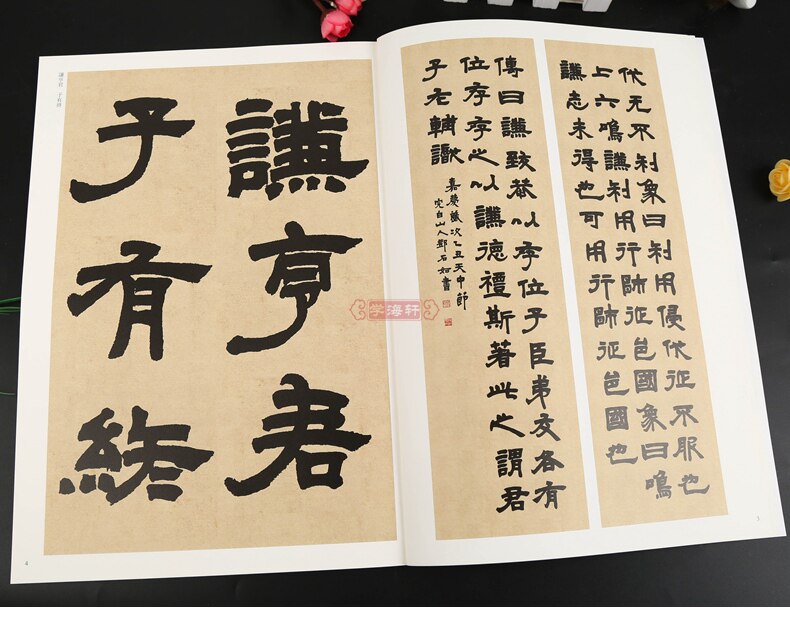 伐无不利象曰利用侵伐征不服也
上六鳴謙利用行師征邑國象曰鳴
謙志未得也可用行師征邑國也
3
傳曰謙致恭以存位子臣弟友各有
位存存之以謙德禮斯著此之謂君
子左輔
嘉慶歲次乙丑天中節
完白山人鄧石如書
学海轩
謙亨君
子有終
謙亨君 子有終
4